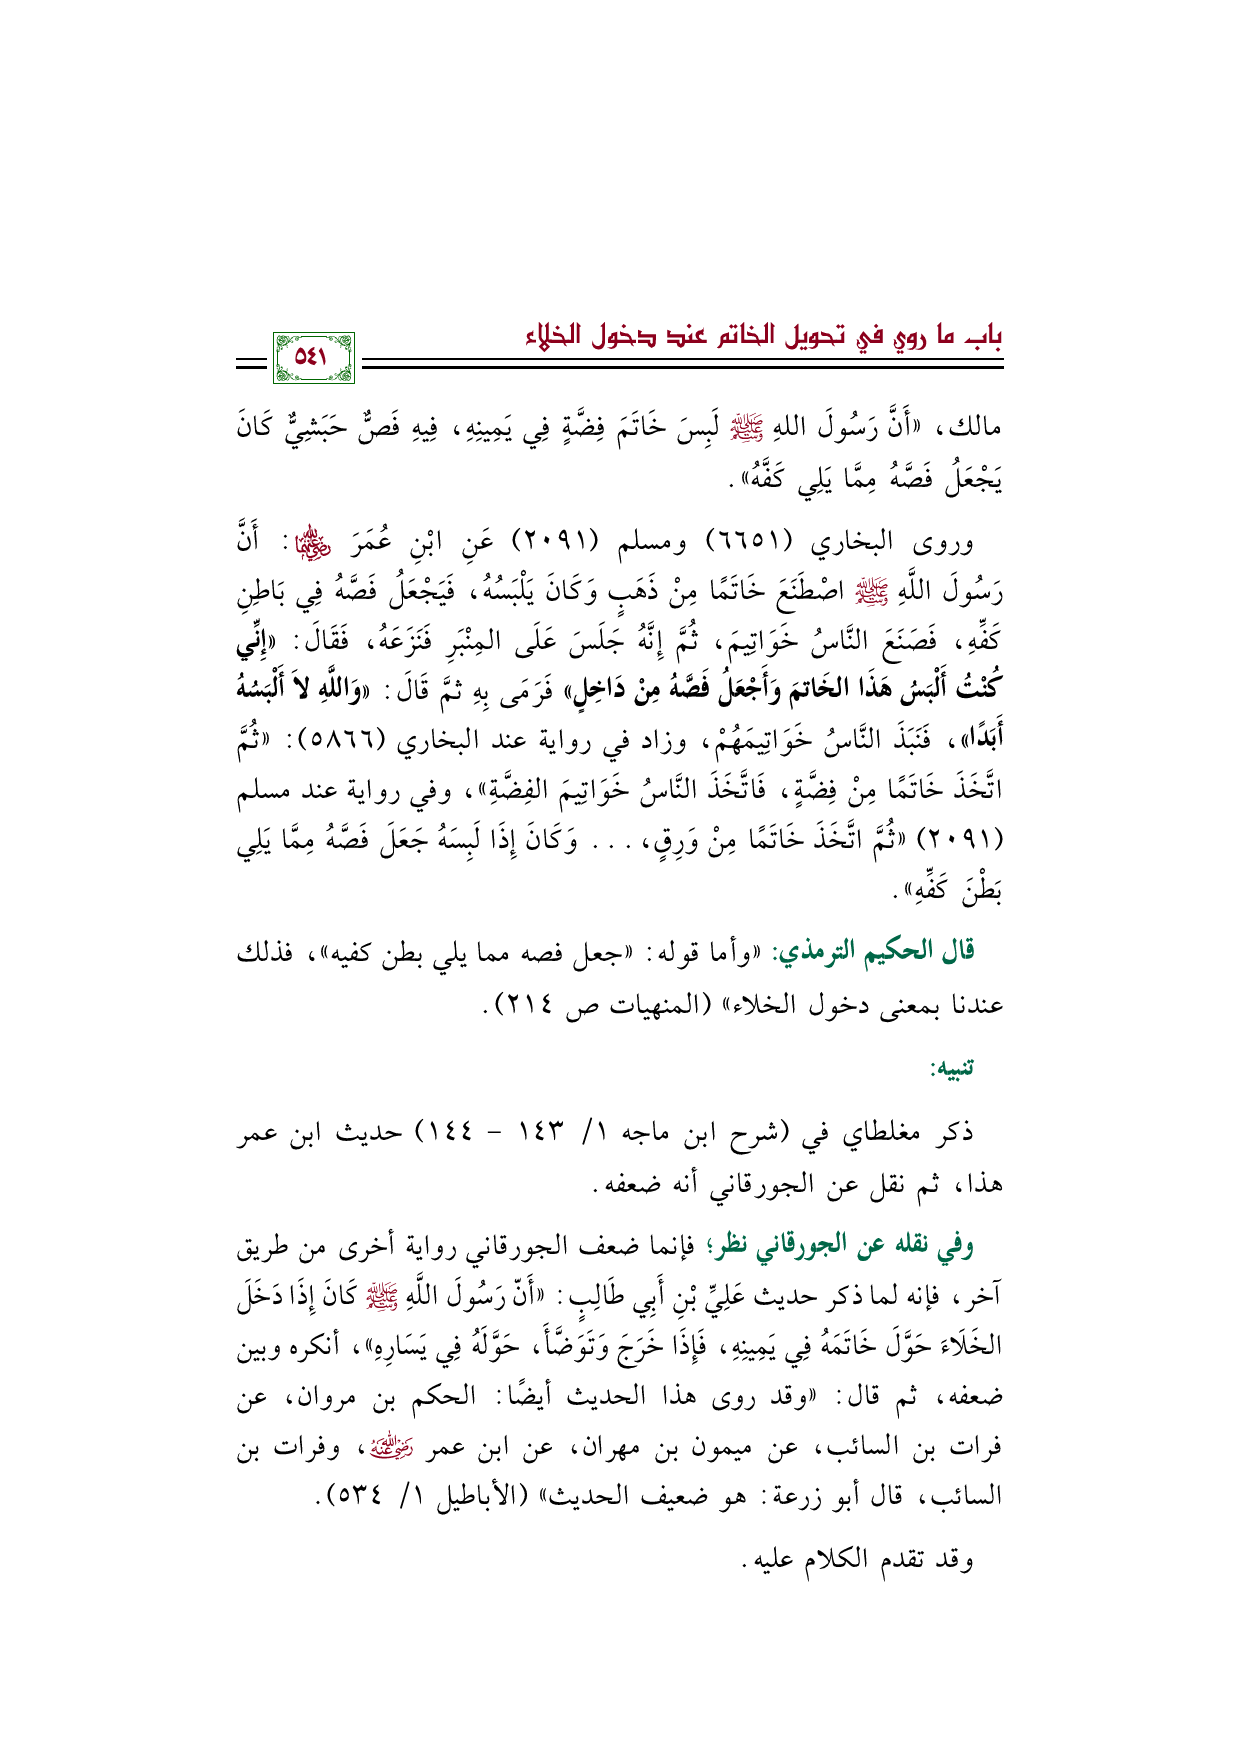 باب ما روي في تحويل الخاتم عند دخول الخلاء
٥٤١
مالك، «أَنَّ رَسُولَ اللهِ ﷺ لَبِسَ خَاتَمَ فِضَّةٍ فِي يَمِينِهِ، فِيهِ فَصٌّ حَبَشِيٌّ كَانَ
يَجْعَلُ فَصَّهُ مِمَّا يَلِي كَفَّهُ».
وروى البخاري (٦٦٥١) ومسلم (٢٠٩١) عَنِ ابْنِ عُمَرَ رضي الله عنهما: أَنَّ
رَسُولَ اللَّهِ ﷺ اصْطَنَعَ خَاتَمًا مِنْ ذَهَبٍ وَكَانَ يَلْبَسُهُ، فَيَجْعَلُ فَصَّهُ فِي بَاطِنِ
كَفِّهِ، فَصَنَعَ النَّاسُ خَوَاتِيمَ، ثُمَّ إِنَّهُ جَلَسَ عَلَى المِنْبَرِ فَنَزَعَهُ، فَقَالَ: «إِنِّي
كُنْتُ أَلْبَسُ هَذَا الخَاتمَ وَأَجْعَلُ فَصَّهُ مِنْ دَاخِلٍ» فَرَمَى بِهِ ثمَّ قَالَ: «وَاللَّهِ لاَ أَلْبَسُهُ
أَبَدًا»، فَنَبَذَ النَّاسُ خَوَاتِيمَهُمْ، وزاد في رواية عند البخاري (٥٨٦٦): «ثُمَّ
اتَّخَذَ خَاتَمًا مِنْ فِضَّةٍ، فَاتَّخَذَ النَّاسُ خَوَاتِيمَ الفِضَّةِ»، وفي رواية عند مسلم
(٢٠٩١) «ثُمَّ اتَّخَذَ خَاتَمًا مِنْ وَرِقٍ، ... وَكَانَ إِذَا لَبِسَهُ جَعَلَ فَصَّهُ مِمَّا يَلِي
بَطْنَ كَفِّهِ».
قال الحكيم الترمذي: «وأما قوله: «جعل فصه مما يلي بطن كفيه»، فذلك
عندنا بمعنى دخول الخلاء» (المنهيات ص ٢١٤).
تنبيه:
ذكر مغلطاي في (شرح ابن ماجه ١/ ١٤٣ – ١٤٤) حديث ابن عمر
هذا، ثم نقل عن الجورقاني أنه ضعفه.
وفي نقله عن الجورقاني نظر؛ فإنما ضعف الجورقاني رواية أخرى من طريق
آخر، فإنه لما ذكر حديث عَلِيِّ بْنِ أَبِي طَالِبٍ: «أَنّ رَسُولَ اللَّهِ ﷺ كَانَ إِذَا دَخَلَ
الخَلَاءَ حَوَّلَ خَاتَمَهُ فِي يَمِينِهِ، فَإِذَا خَرَجَ وَتَوَضَّأَ، حَوَّلَهُ فِي يَسَارِهِ»، أنكره وبين
ضعفه، ثم قال: «وقد روى هذا الحديث أيضًا: الحكم بن مروان، عن
فرات بن السائب، عن ميمون بن مهران، عن ابن عمر رضي الله عنه، وفرات بن
السائب، قال أبو زرعة: هو ضعيف الحديث» (الأباطيل ١/ ٥٣٤).
وقد تقدم الكلام عليه.